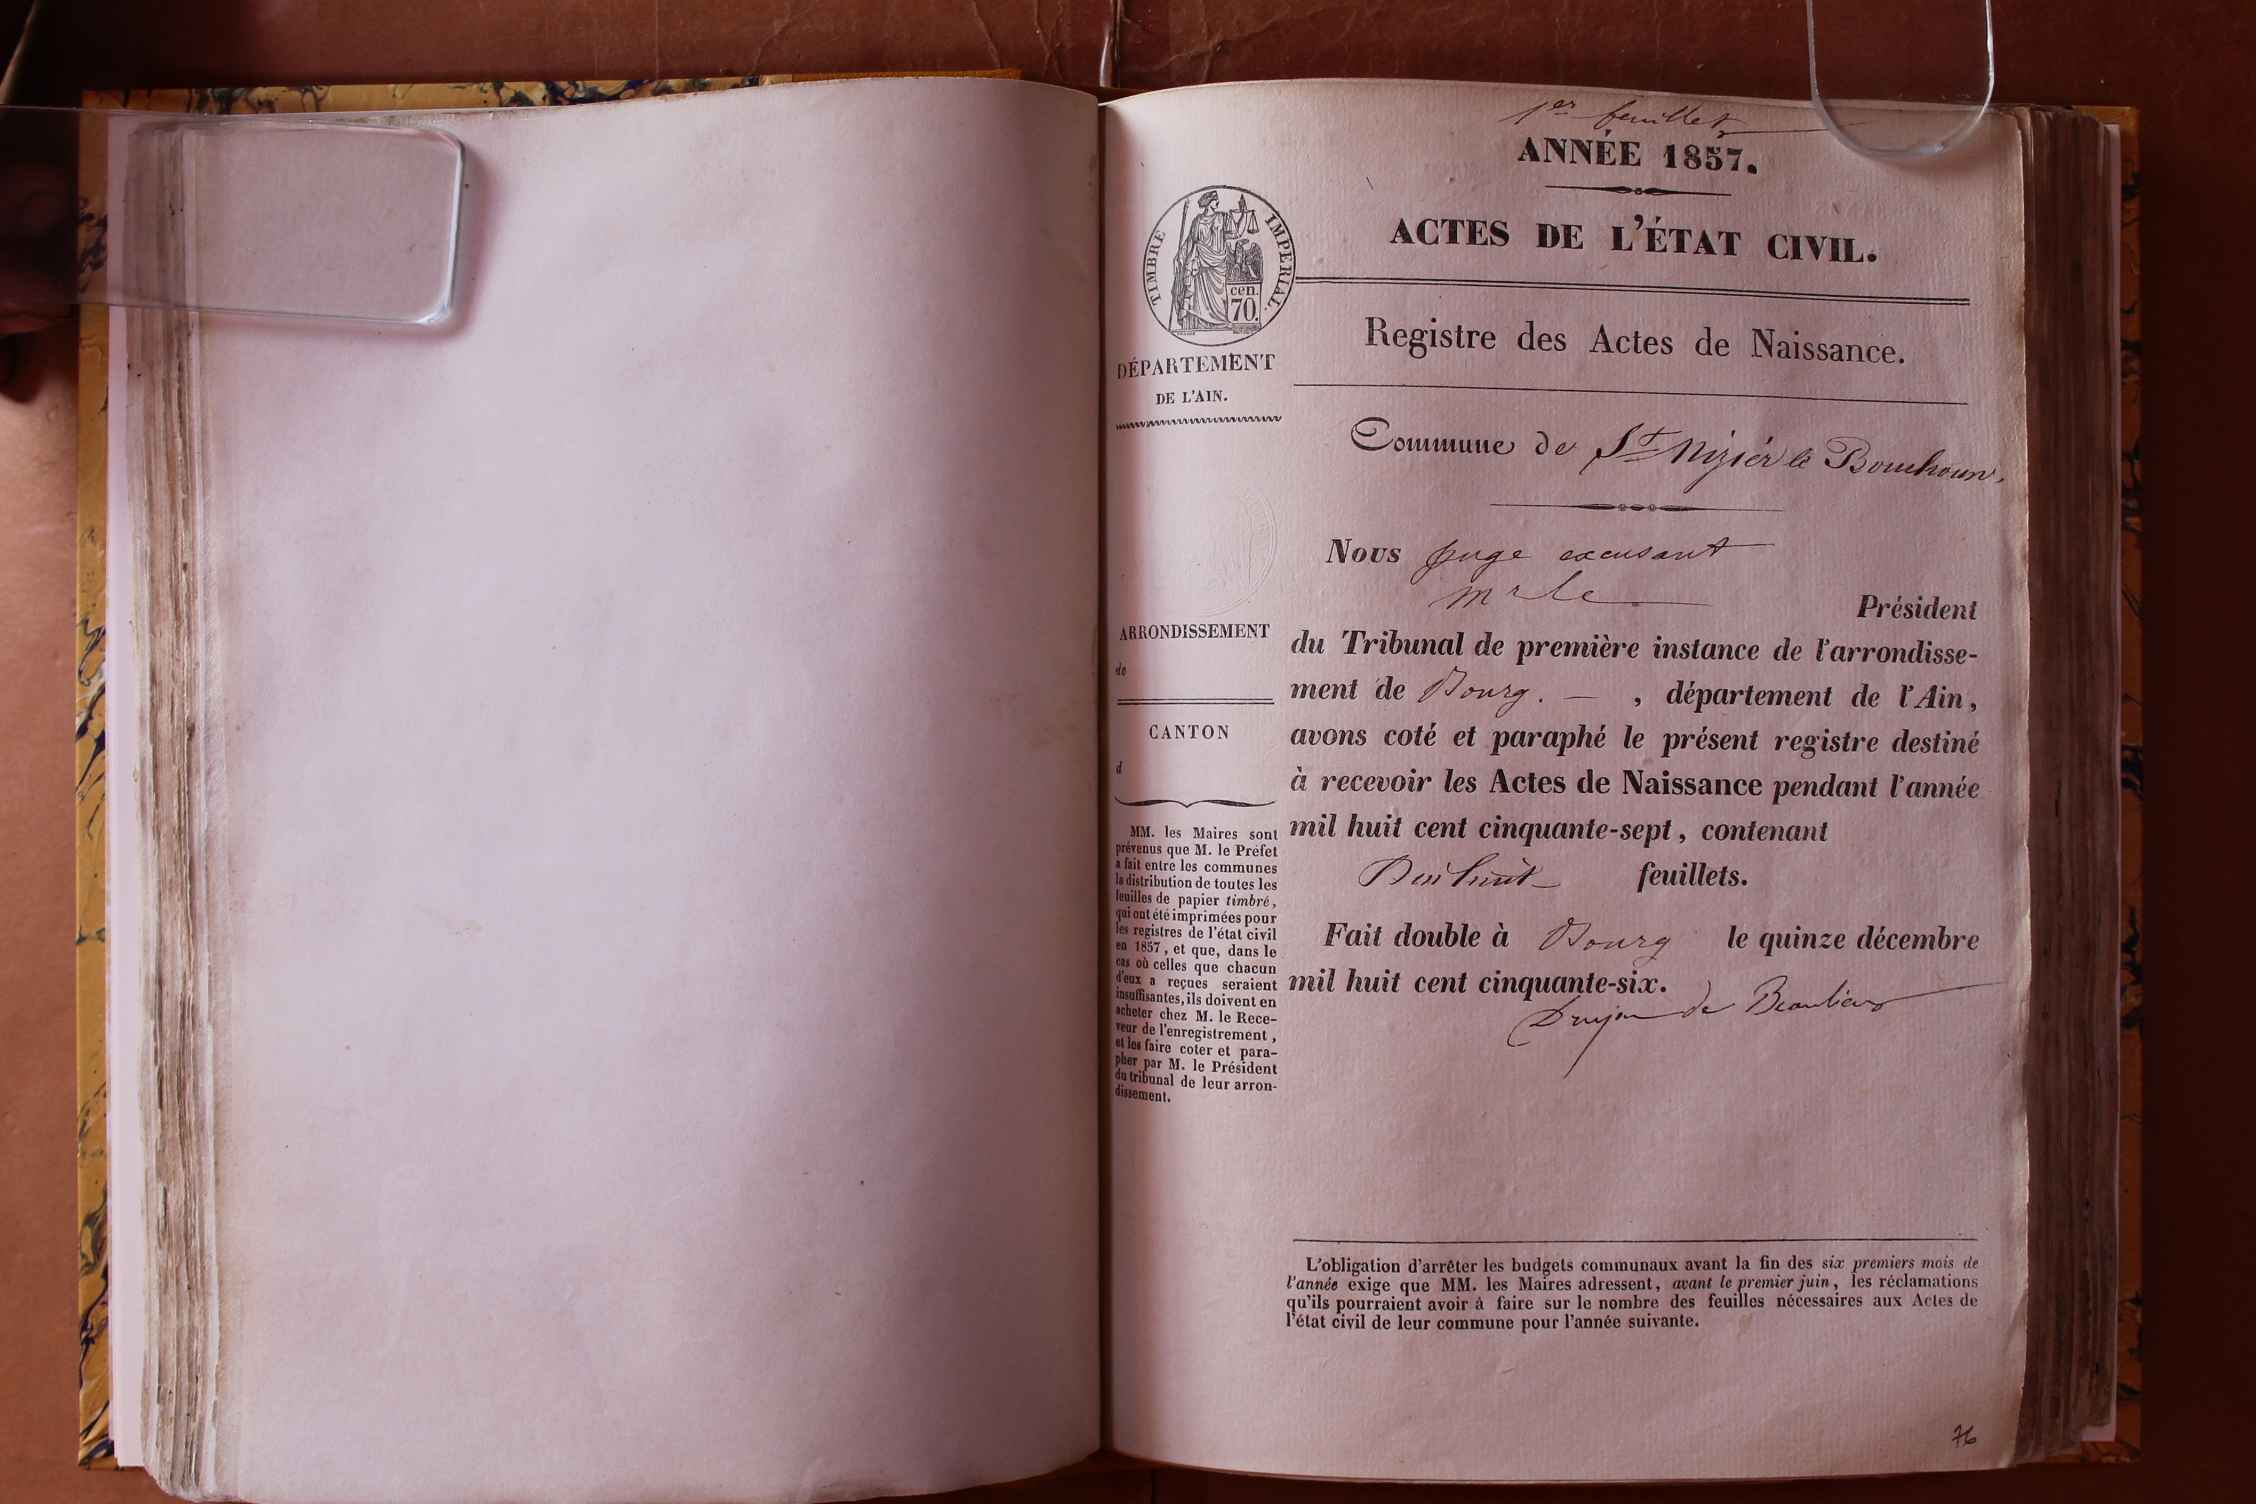 1er feuillet
ANNÉE 1857.
ACTES DE L'ÉTAT CIVIL.
TIMBRE IMPERIAL.
cen.
70.
DÉPARTEMENT
DE L'AIN.
Registre des Actes de Naissance.
Commune de St Nizier le Bouchoux,
ARRONDISSEMENT
de
CANTON
d
MM. les Maires sont
prévenus que M. le Préfet
a fait entre les communes
la distribution de toutes les
feuilles de papier timbré,
qui ont été imprimées pour
les registres de l'état civil
en 1857, et que, dans le
cas où celles que chacun
d'eux a reçues seraient
insuffisantes, ils doivent en
acheter chez M. le Rece-
veur de l'enregistrement,
et les faire coter et para-
pher par M. le Président
du tribunal de leur arron-
dissement.
Nous Juge excusant
Mr le Président
du Tribunal de première instance de l'arrondisse-
ment de Bourg. — , département de l'Ain,
avons coté et paraphé le présent registre destiné
à recevoir les Actes de Naissance pendant l'année
mil huit cent cinquante-sept, contenant
Dix huit feuillets.
Fait double à Bourg le quinze décembre
mil huit cent cinquante-six.
de Beaulieu
L'obligation d'arrêter les budgets communaux avant la fin des six premiers mois de
l'année exige que MM. les Maires adressent, avant le premier juin, les réclamations
qu'ils pourraient avoir à faire sur le nombre des feuilles nécessaires aux Actes de
l'état civil de leur commune pour l'année suivante.
76